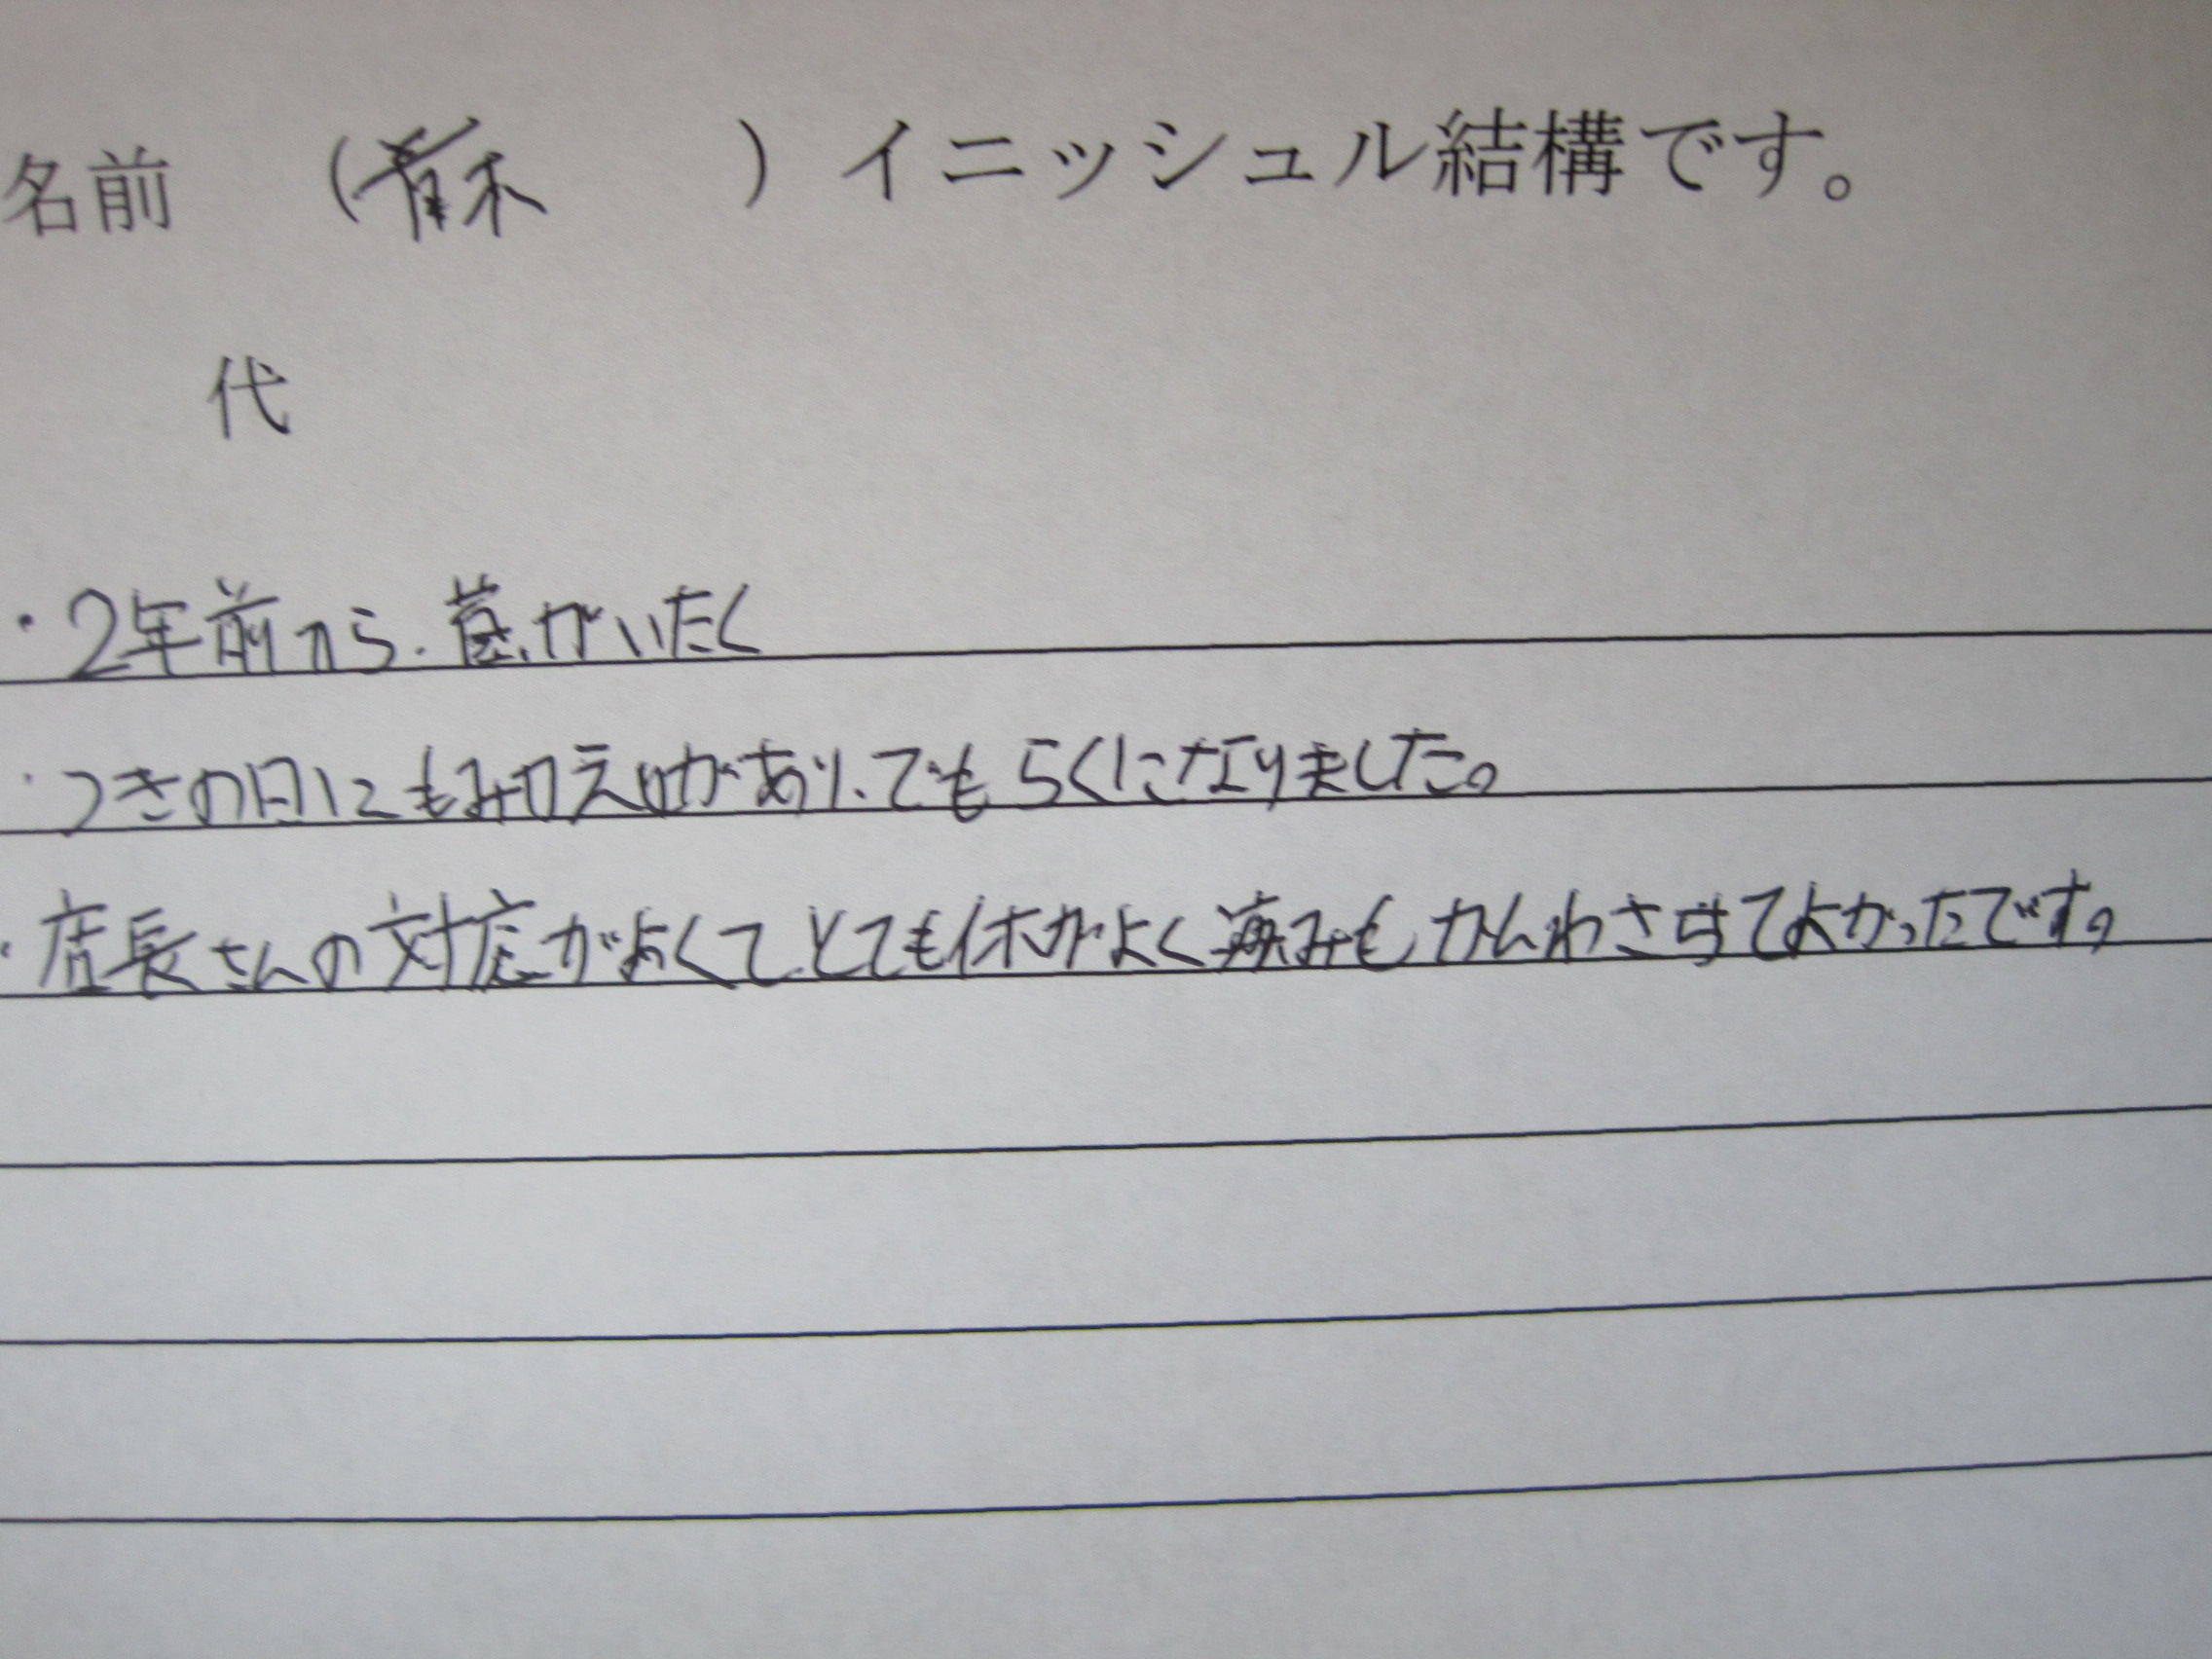 名前 (青木 ) イニッシュル結構です。
代
・2年前から、首がいたく
・つきの日にもみかえりがあり、でもらくになりました。
・店長さんの対応がよくてとても体がよく痛みもかんわさせてよかったです。